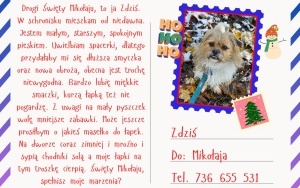 Drogi Święty Mikołaju, to ja Zdziś.
W schronisku mieszkam od niedawna.
Jestem małym, starszym, spokojnym
pieskiem. Uwielbiam spacerki, dlatego
przydałaby mi się dłuższa smyczka
oraz nowa obroża, obecna jest trochę
niewygodna. Bardzo lubię miękkie
smaczki, kurzą łapką też nie
pogardzę. Z uwagi na mały pyszczek
wolę mniejsze zabawki. Może jeszcze
prosiłbym o jakieś masełko do łapek.
Na dworze coraz zimniej i mroźno i
sypią chodniki solą a moje łapki na
tym troszkę cierpią. Święty Mikołaju,
spełnisz moje marzenia?
HO
HO
HO
Zdziś
Do: Mikołaja
Tel. 736 655 531